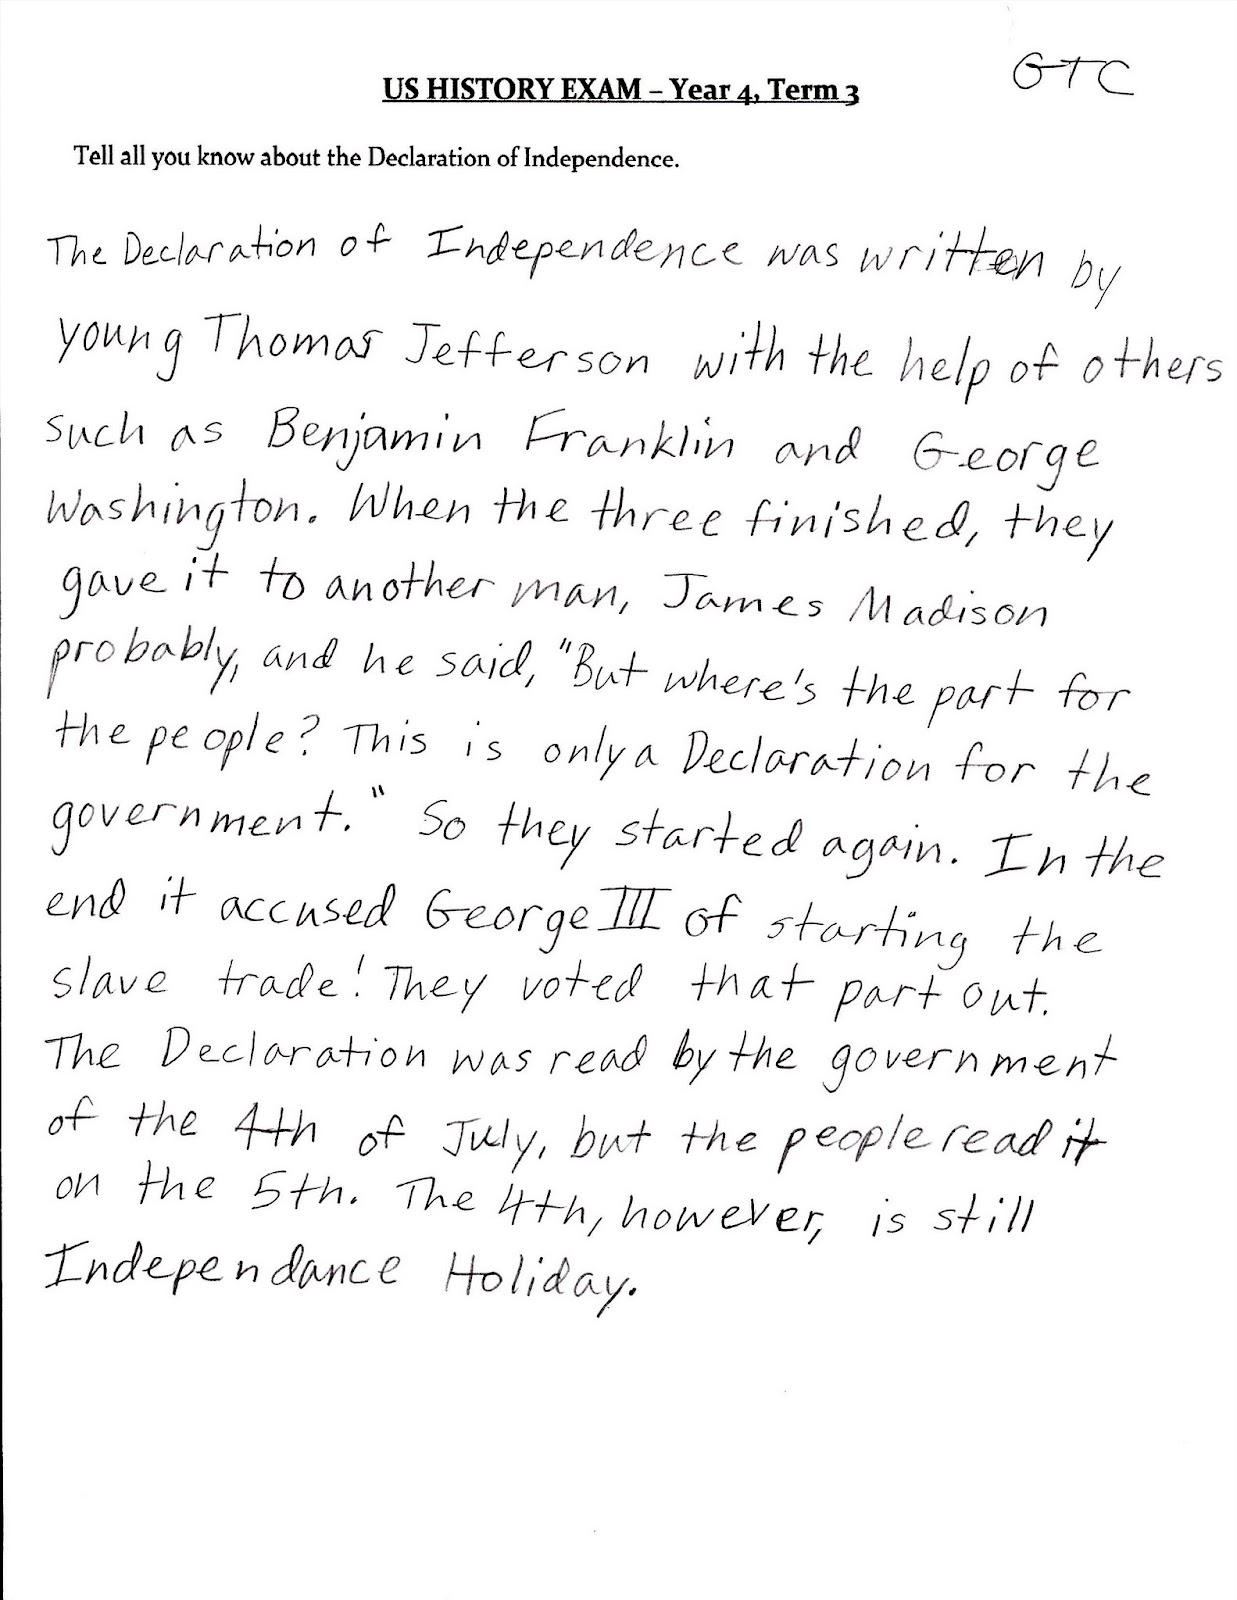 GTC
US HISTORY EXAM – Year 4, Term 3
Tell all you know about the Declaration of Independence.
The Declaration of Independence was written by
young Thomas Jefferson with the help of others
such as Benjamin Franklin and George
Washington. When the three finished, they
gave it to another man, James Madison
probably, and he said, "But where's the part for
the people? This is only a Declaration for the
government." So they started again. In the
end it accused George III of starting the
slave trade! They voted that part out.
The Declaration was read by the government
of the 4th of July, but the people read it
on the 5th. The 4th, however, is still
Independance Holiday.